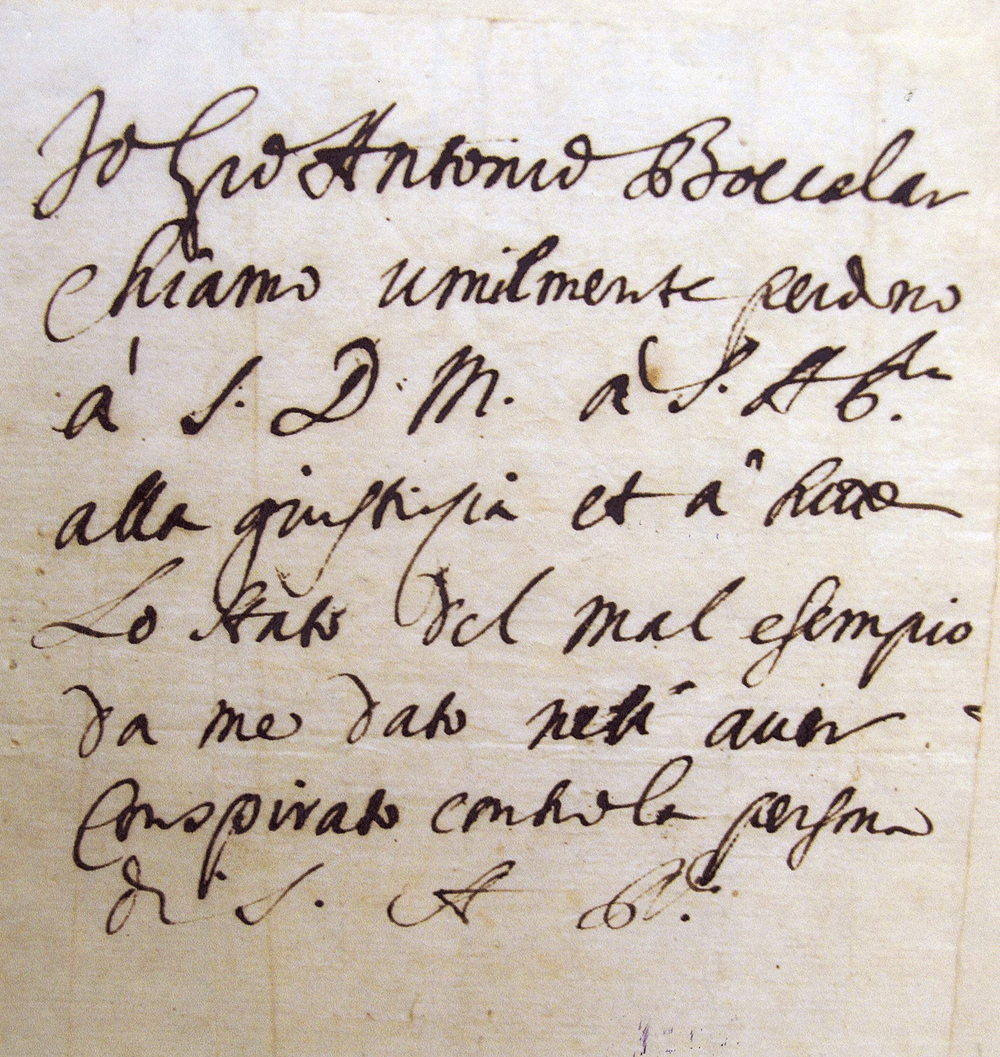 Io Gio Antonio Boccalar
chiamo umilmente perdono
à S. D. M. à S. A R.
alla giustizia et à tutto
Lo stato del mal esempio
da me dato nell' auer
Conspirato contro la persona
di S. A R.